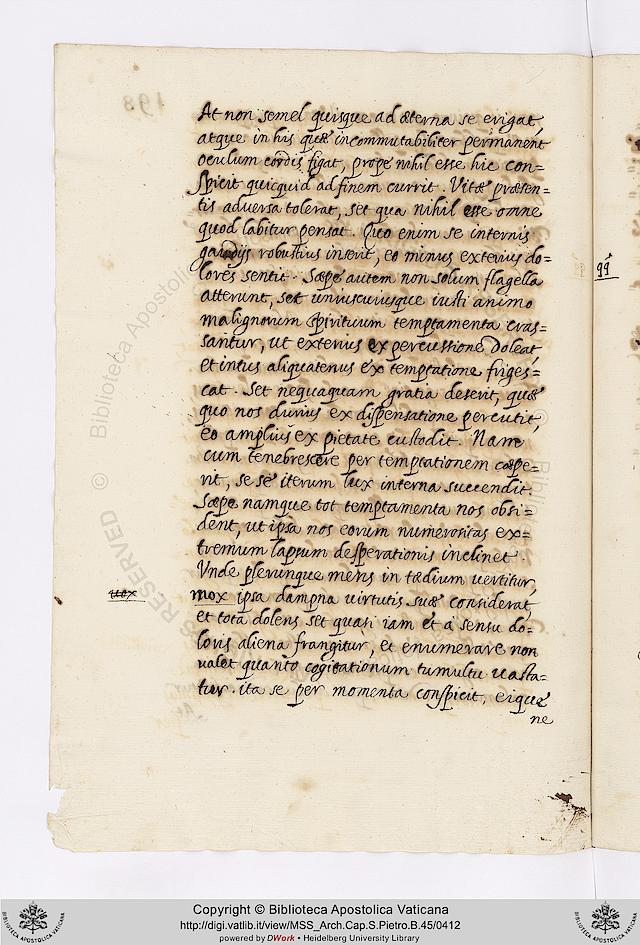 At non semel quisque ad æterna se erigat,
atque in his quæ incommutabiliter permanent
oculum cordis figat, prope nihil esse hic con=
spicit quicquid ad finem currit. Vitæ præsen=
tis adversa tolerat, set qua nihil esse omne
quod labitur pensat. Quo enim se internis
gaudijs robustius inserit, eo minus exterius do=
lores sentit. Sæpe autem non solum flagella
atterunt, set uniuscuiusque iusti animo
malignorum spirituum temptamenta cras=
santur, ut exterius ex percussione doleat,
et intus aliquatenus ex temptatione friges=
cat. Set nequaquam gratia deserit, quæ
quo nos durius ex dispensatione percutit,
eo amplius ex pietate custodit. Nam
cum tenebrescere per temptationem cæpe=
rit, se se iterum lux interna succendit.
Sæpe namque tot temptamenta nos obsi=
dent, ut ipsa nos eorum numerositas ex=
tremum lapsum desperationis inclinet.
Vnde plerunque mens in tædium vertitur,
mox
mox ipsa dampna virtutis suæ considerat,
et tota dolens set quasi iam et a sensu do=
loris aliena frangitur, et enumerare non
valet quanto cogitationum tumultu vasta=
tur. ita se per momenta conspicit, eique
ne
99
198
© Biblioteca Apostolica
RESERVED
Copyright © Biblioteca Apostolica Vaticana
http://digi.vatlib.it/view/MSS_Arch.Cap.S.Pietro.B.45/0412
powered by DWork • Heidelberg University Library